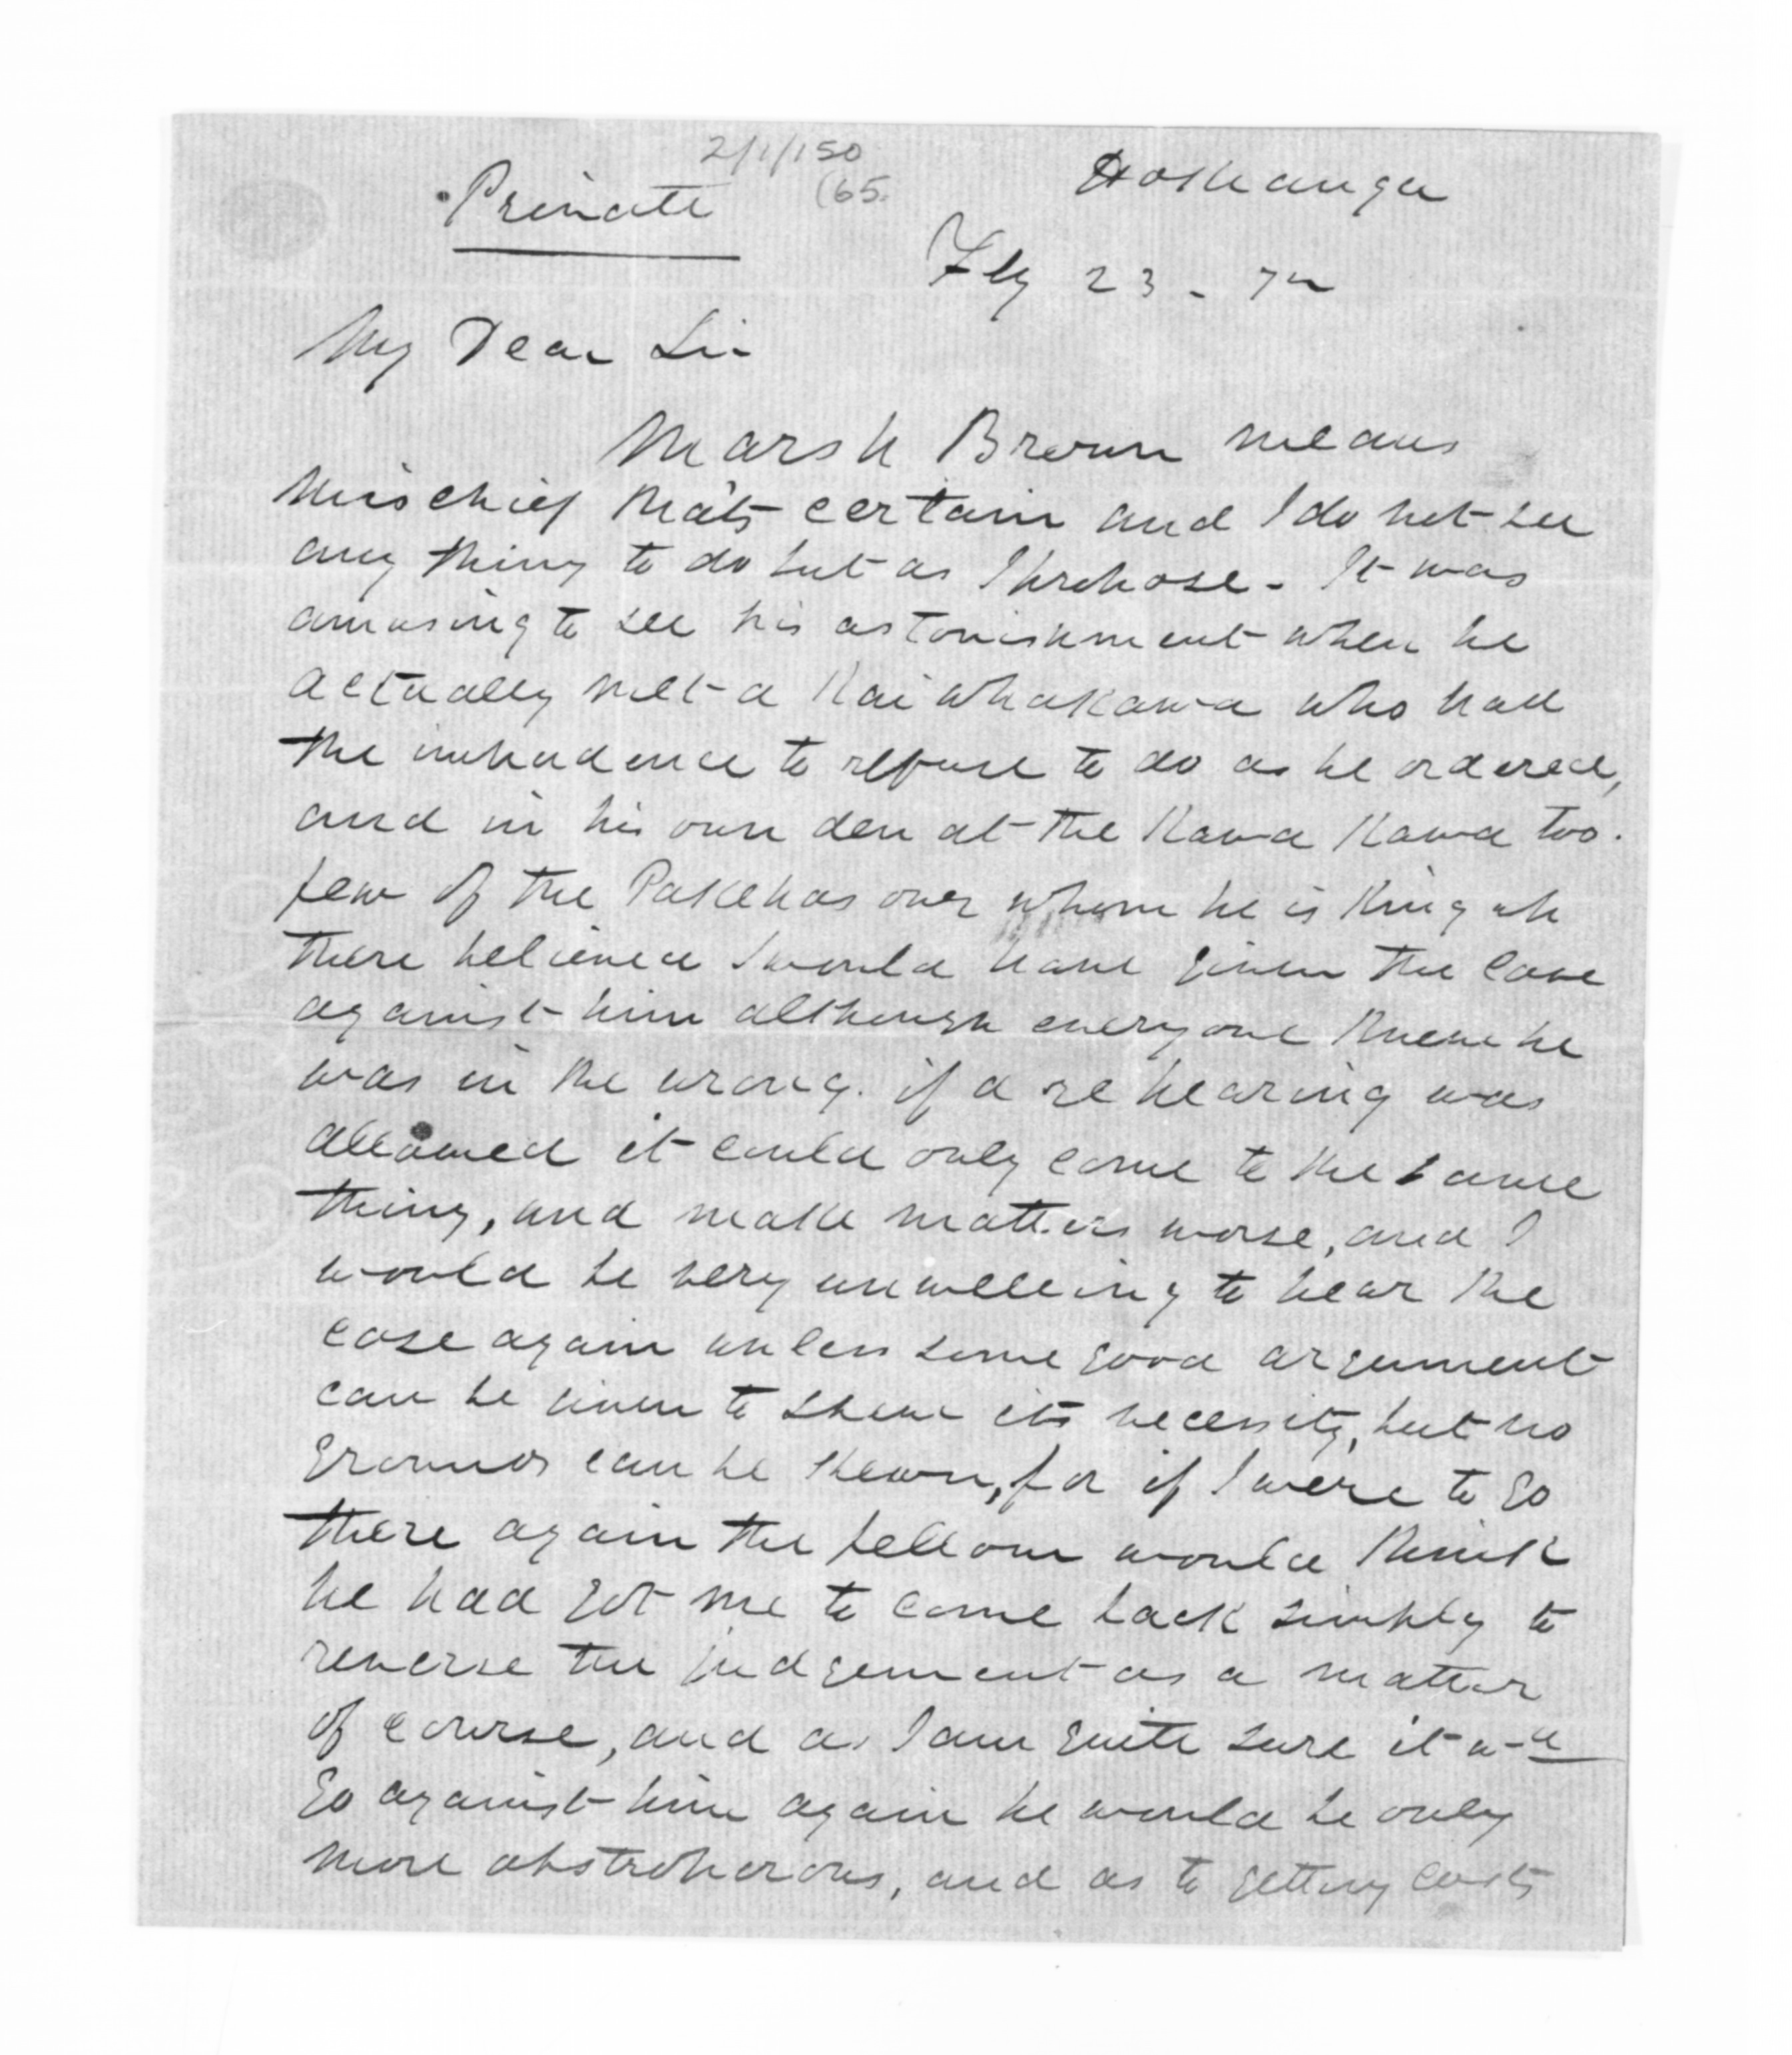 2/1/150
(65.
Private
Hokianga
Feby 23 - 72
My Dear Sir
Marsh Brown means
mischief that's certain and I do not see
any thing to do but as I propose - It was
amusing to see his astonishment when he
actually met a Kai whakawa who had
the impudence to refuse to do as he ordered,
and in his own den at the Kawa Kawa too.
few of the Pakehas over whom he is King
there believed I would have given the case
against him although every one knew he
was in the wrong. if a re hearing was
allowed it could only come to the same
thing, and make matters worse, and I
would be very unwilling to hear the
case again unless some good argument
can be given to shew its necessity, but no
grounds can be shewn, for if I were to go
there again the fellow would think
he had got me to come back simply to
reverse the judgement as a matter
of course, and as I am quite sure it wd
go against him again he would be only
more obstroporous, and as to getting costs